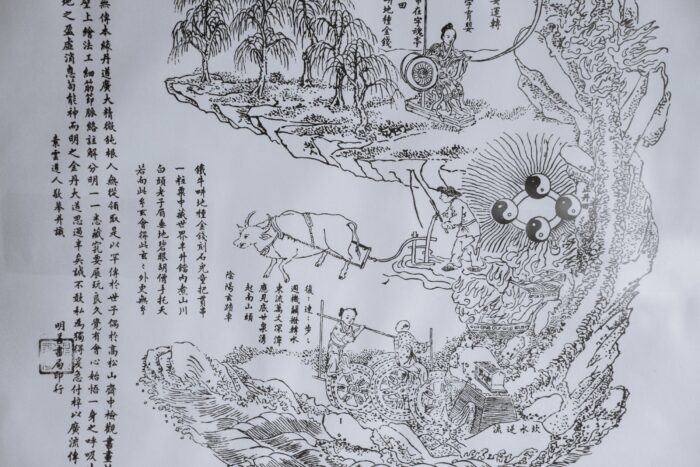 地種金錢
無傳本緣丹道廣大精微鈍根人無從領取是以罕傳於世予偶於高松山齋中檢觀書畫
壁上繪法工細筋節脈絡註解分明一一悉藏竅要展玩良久覺有會心始悟一身之呼吸
地之盈虛消息苟能神而明之金丹大道思過半矣誠不敢私為獨得爰急付梓以廣流傳
素雲道人敬摹并識
明善書局印行
鐵牛畊地種金錢刻石兒童把貫串
一粒粟中藏世界半升鐺內煮山川
白頭老子眉垂地碧眼胡僧手托天
若向此玄玄會得此玄玄外更無玄
復復連連步步
週機關撥轉水
東流萬丈深潭
應見底甘泉湧
起南山頭
陰陽玄踏車
坎水逆流